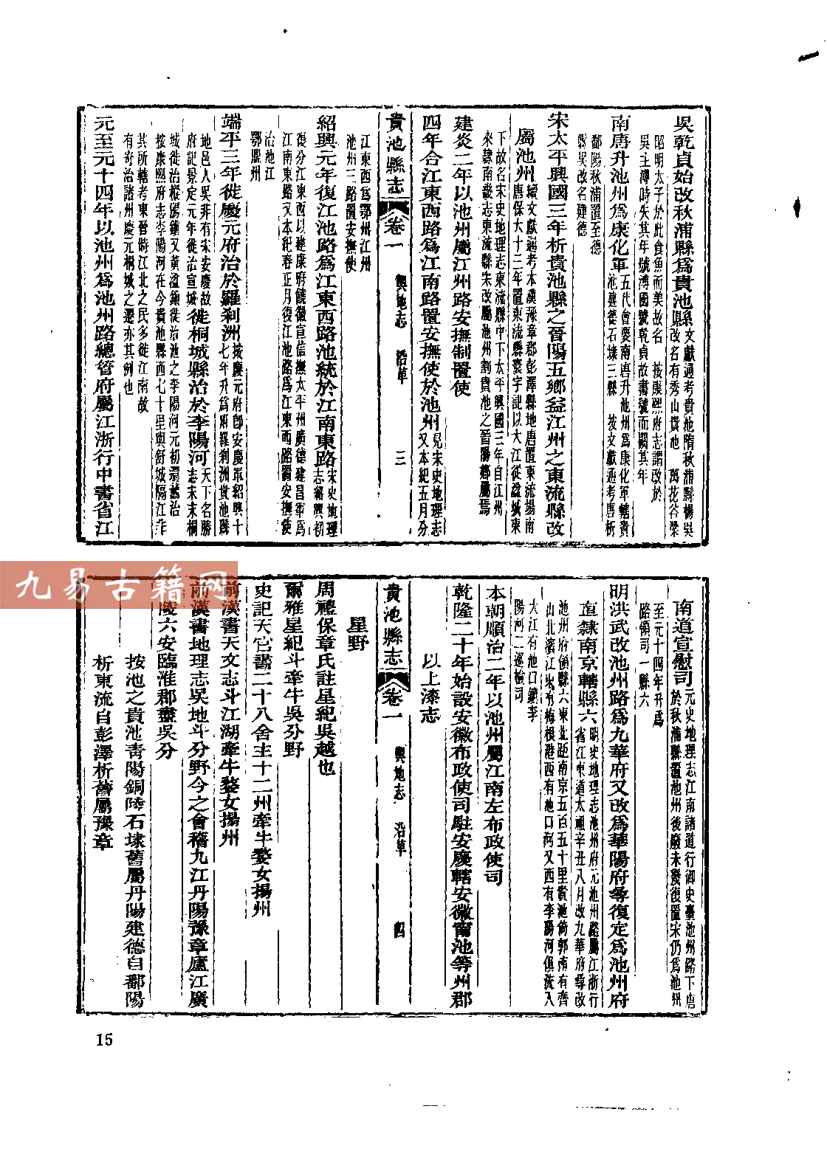 吳乾貞始改秋浦縣爲貴池縣文獻通考貴池隋秋浦縣楊吳改名有秀山貴池 萬花谷梁
昭明太子於此食魚而美故名 按康熙府志謂改於
吳主溥時失其年號溥國號乾貞故書號而闕其年
南唐升池州爲康化軍五代會要南唐升池州爲康化軍轄貴池建德石埭三縣 按文獻通考唐析
鄱陽秋浦置至德
縣吳改名建德
宋太平興國三年析貴池縣之晉陽五鄉益江州之東流縣改
屬池州續文獻通考本漢豫章郡彭澤縣地唐置東流場南唐保大十三年置東流縣寰宇記以大江從湓城東
下故名宋史地理志東流縣中下太平興國三年自江州
來隸南畿志東流縣宋改屬池州割貴池之晉陽鄉屬焉
建炎二年以池州屬江州路安撫制置使
四年合江東西路爲江南路置安撫使於池州見宋史地理志又本紀五月分
江東西爲鄂州江州
池州三路置安撫使
貴池縣志 卷一 輿地志 沿革 三
紹興元年復江池路爲江東西路池統於江南東路宋史地理志紹興初
復分江東西以建康府饒徽宣信撫太平州廣德建昌軍爲
江南東路又本紀春正月復江池路爲江東西路置安撫使
治池江
鄂州
端平三年徙慶元府治於羅刹洲按慶元府卽安慶軍紹興十七年升爲府羅刹洲貴池縣
地邑人吳非有宋安慶故府記景定元年徙治宣城徙桐城縣治於李陽河天下名勝志宋末桐
城徙治樅陽鎮又黃湓鎮徙治池之李陽河元初還舊治
按康熙府志李陽河在今貴池縣西七十里與舒城隔江
其所轄考東晉時江北之民多徙江南故
有寄治諸州慶元桐城之遷亦其例也
元至元十四年以池州爲池州路總管府屬江浙行中書省江
南道宣慰司元史地理志江南諸道行御史臺池州路下唐於秋浦縣置池州後廢未幾復置宋仍爲池州
至元十四年升爲
路領司一縣六
明洪武改池州路爲九華府又改爲華陽府尋復定爲池州府
直隸南京轄縣六明史地理志池州府元池州路屬江浙行省江東道太祖辛丑八月改九華府尋改
池州府領縣六東北距南京五百五十里貴池倚郭南有齊
山北濱江東有梅根港西有池口河又西有李陽河俱流入
大江有池口鎮李
陽河二巡檢司
本朝順治二年以池州屬江南左布政使司
乾隆二十年始設安徽布政使司駐安慶轄安徽甯池等州郡
以上漆志
貴池縣志 卷一 輿地志 沿革 四
星野
周禮保章氏註星紀吳越也
爾雅星紀斗牽牛吳分野
史記天官書二十八舍主十二州牽牛婺女揚州
前漢書天文志斗江湖牽牛婺女揚州
前漢書地理志吳地斗分野今之會稽九江丹陽豫章廬江廣
陵六安臨淮郡盡吳分
按池之貴池靑陽銅陵石埭舊屬丹陽建德自鄱陽
析東流自彭澤析舊屬豫章
九易古籍网
15